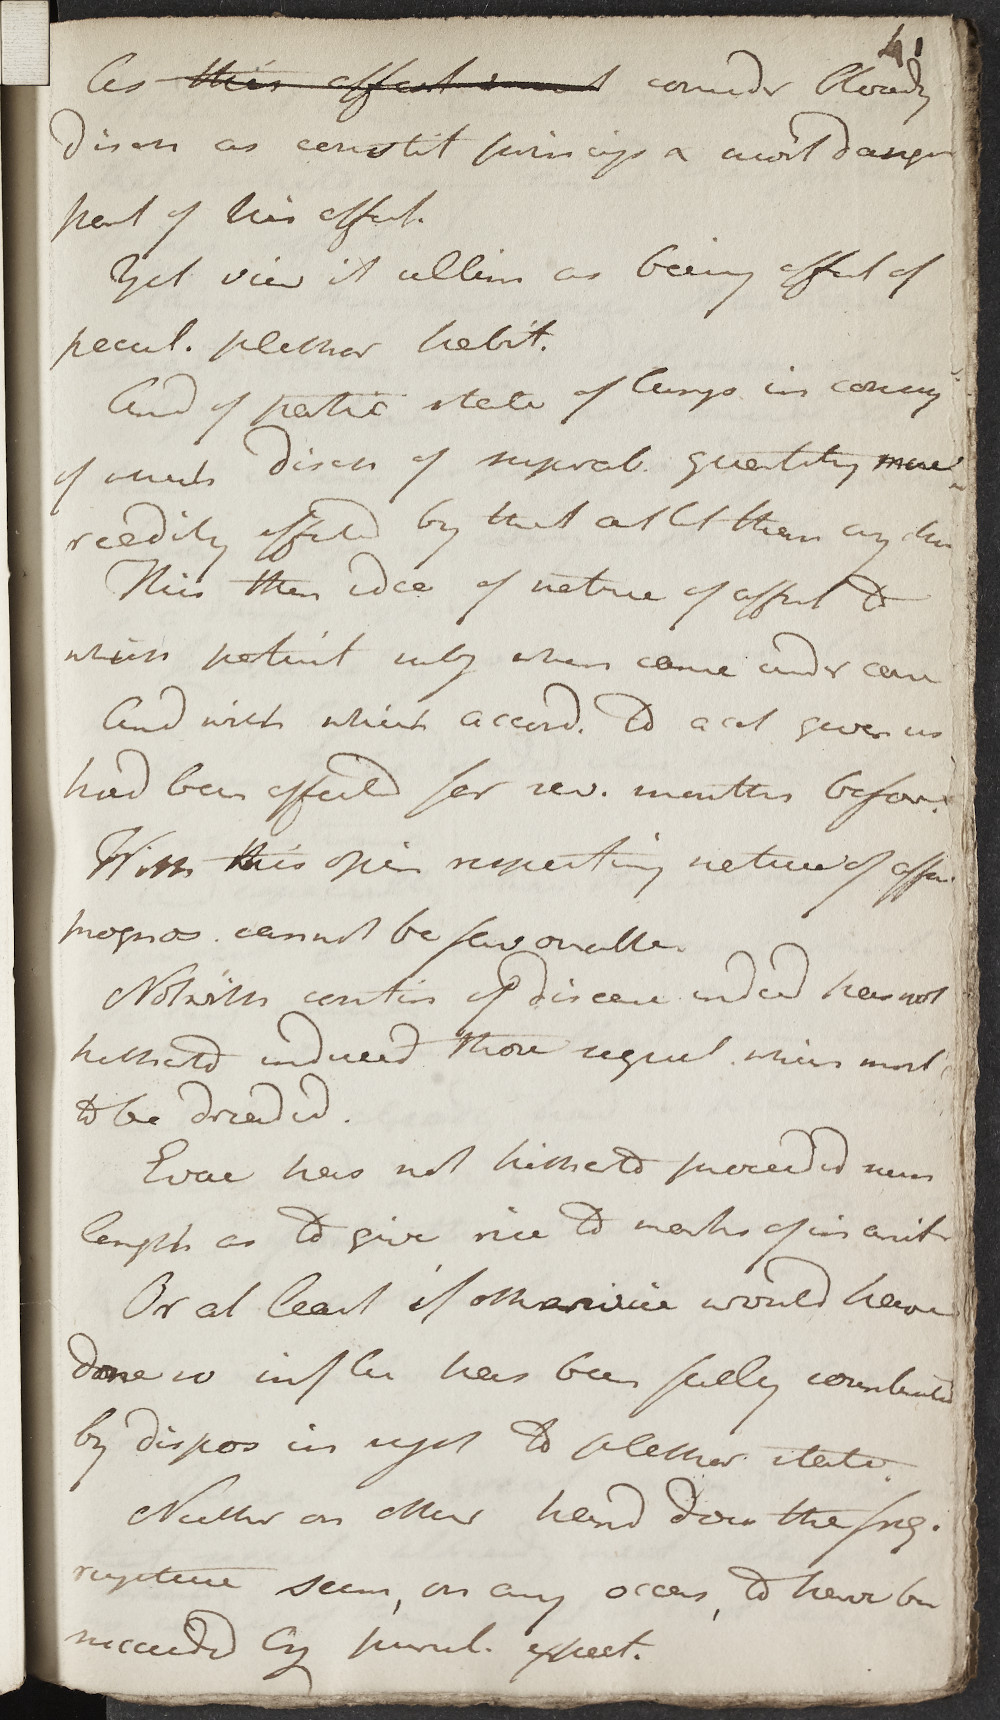 41
As this affect must consider bloody
disch as constit princip & most danger
part of his affect.
Yet view it ultim as being effect of
pecul. plethor habit.
And of partic state of lungs in consequ
of which disch of superab. quantity more
readily effected by that outlet than any other
This then idea of nature of affect to
which patient subj when came under care
And with which accord. to acct given us
had been affected for sev. months before.
With this opin respecting nature of affec
prognos. cannot be favourable.
Notwith contin of disease indeed has not
hitherto induced those sequel. which most
to be dreaded.
Evac has not hitherto proceeded such
length as to give rise to marks of inanit
Or at least if otherwise would have
done so influ has been fully counteracted
by dispos in syst to plethor state.
Neither on other hand does the freq.
rupture seem, on any occas, to have been
succeeded by purul. expect.